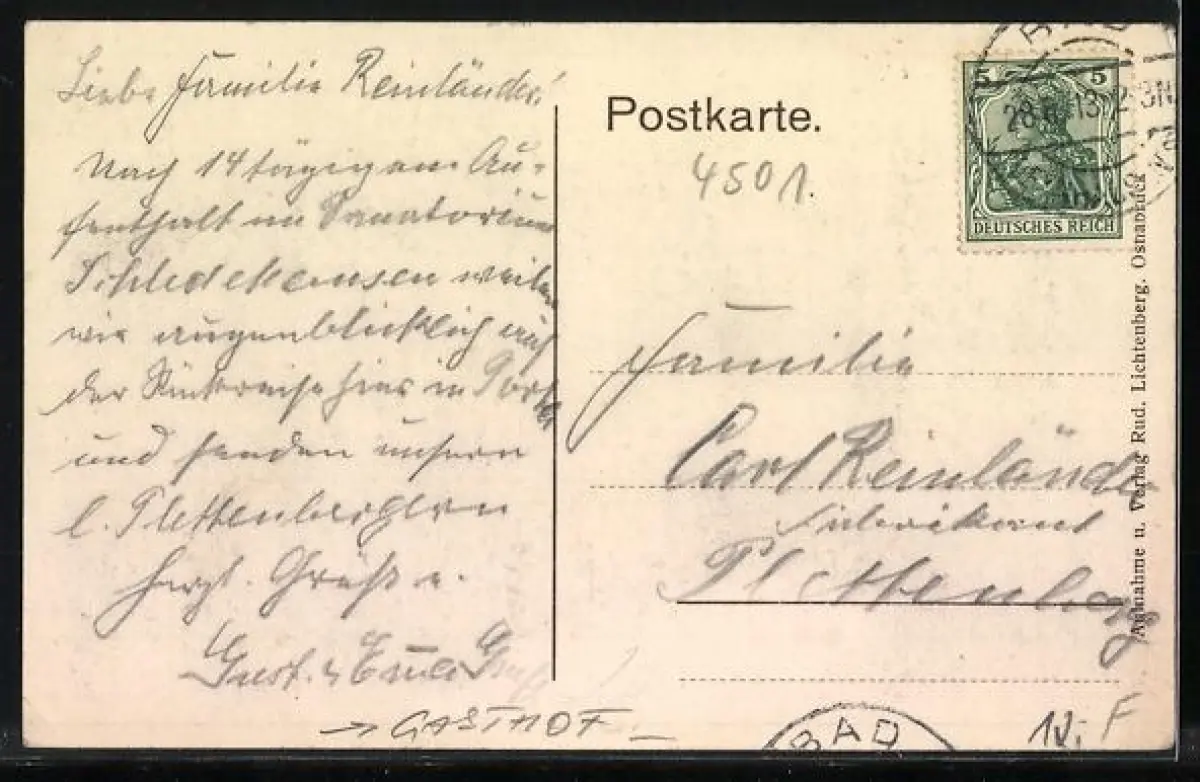 Liebe Familie Reinländer!
Nach 14 tägigem Au-
fenthalt im Sanatorium
Schledehausen weilen
wir augenblicklich auf
der Rückreise hier in
und senden unsern
l. Plettenbergern
herzl. Grüße
Gust. u
→ GASTHOF
Postkarte.
4501.
5 5
28. 13
DEUTSCHES REICH
Familie
Carl Reinländer
Fabrikant
Plettenberg
Aufnahme u. Verlag Rud. Lichtenberg. Osnabrück
BAD
F